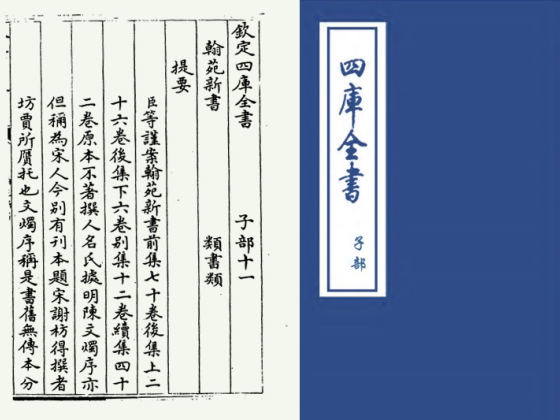 欽定四庫全書 子部十一
翰苑新書 類書類
提要
臣等謹案翰苑新書前集七十卷後集上二
十六卷後集下六卷别集十二卷續集四十
二卷原本不著撰人名氏據明陳文燭序亦
但稱為宋人今别有刊本題宋謝枋得撰者
坊賈所贋托也文燭序稱是書舊無傳本分
四庫全書
子部